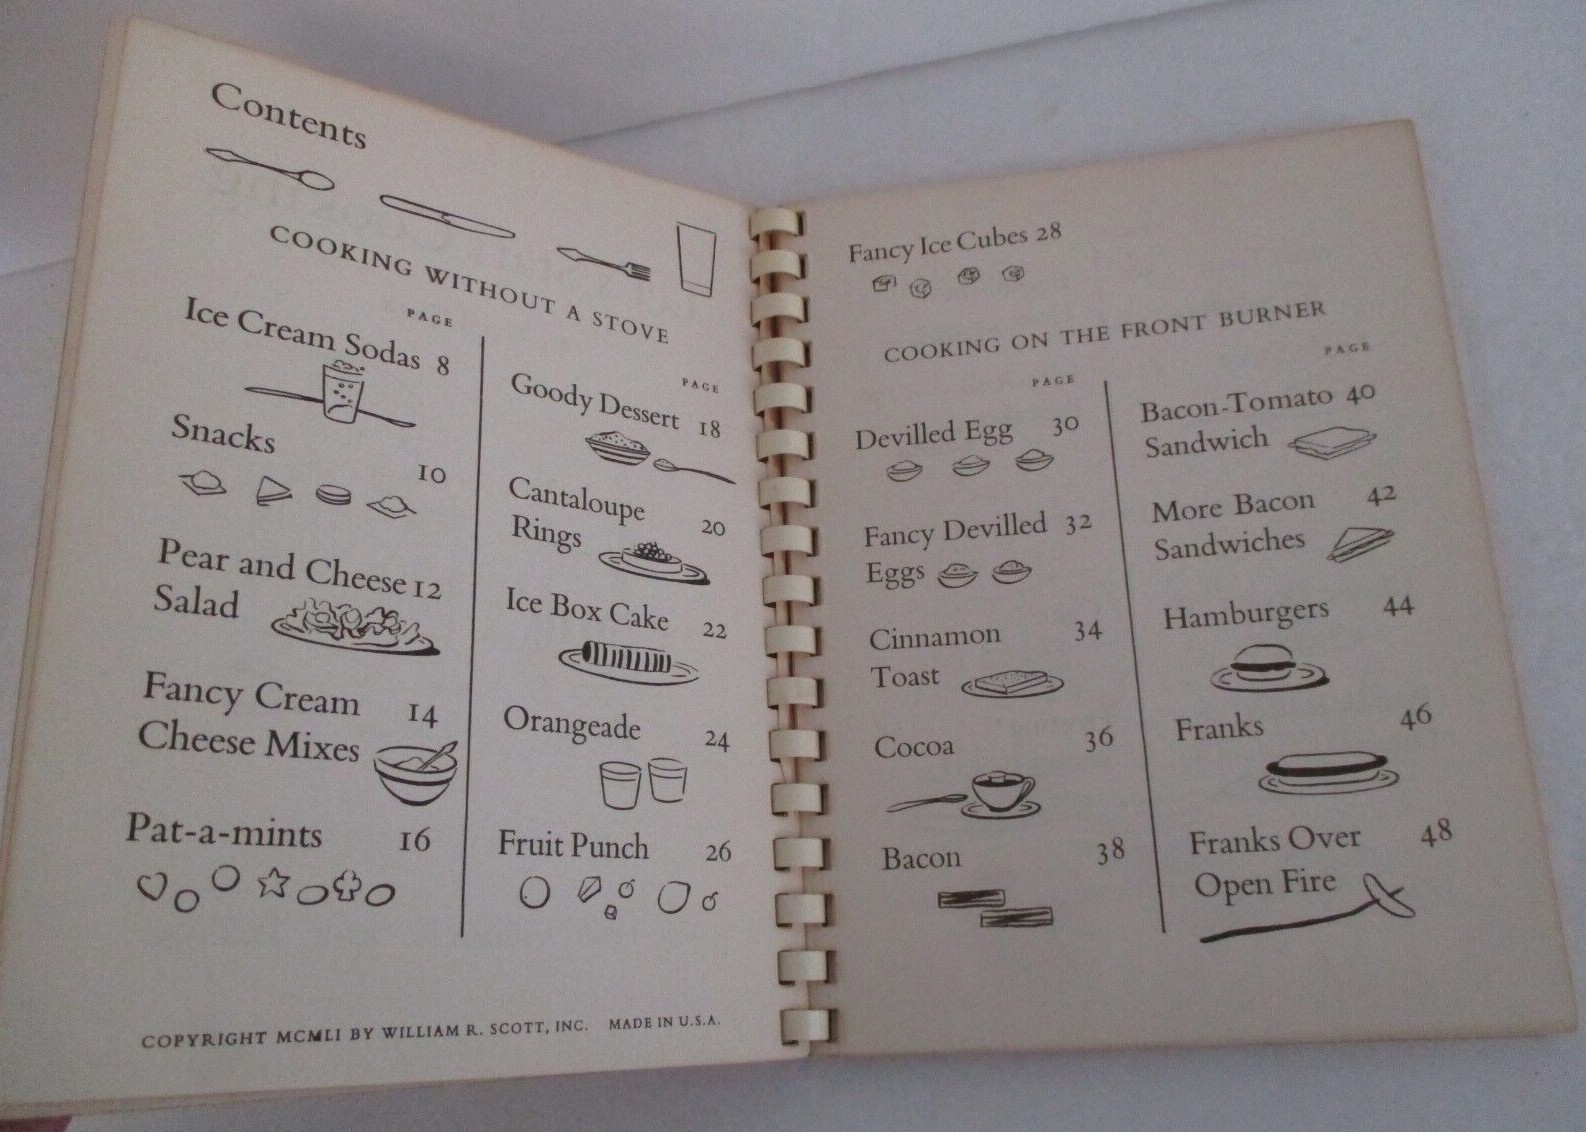 Contents
COOKING WITHOUT A STOVE
PAGE
Ice Cream Sodas 8
Snacks
10
Pear and Cheese 12
Salad
Fancy Cream 14
Cheese Mixes
Pat-a-mints 16
PAGE
Goody Dessert 18
Cantaloupe 20
Rings
Ice Box Cake 22
Orangeade 24
Fruit Punch 26
COPYRIGHT MCMLI BY WILLIAM R. SCOTT, INC. MADE IN U.S.A.
Fancy Ice Cubes 28
COOKING ON THE FRONT BURNER
PAGE
Devilled Egg 30
Fancy Devilled 32
Eggs
Cinnamon 34
Toast
Cocoa 36
Bacon 38
PAGE
Bacon-Tomato 40
Sandwich
More Bacon 42
Sandwiches
Hamburgers 44
Franks 46
Franks Over 48
Open Fire